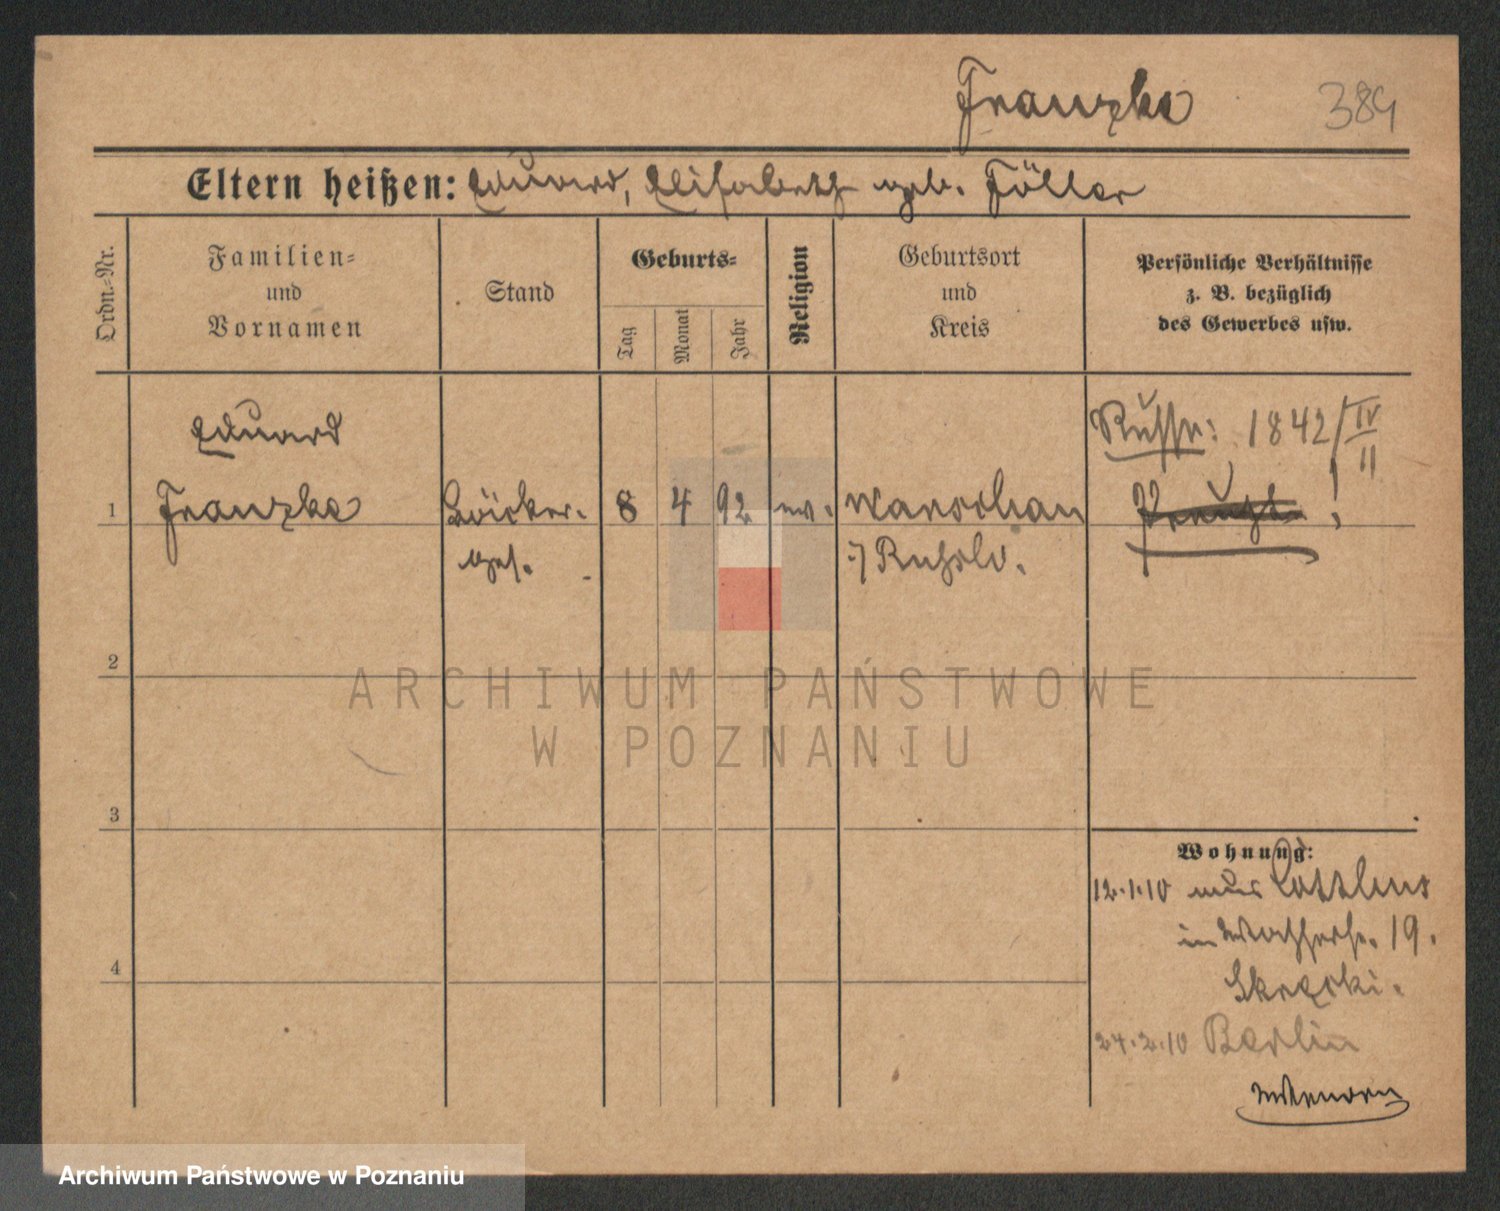 Franzke 384
Eltern heißen: Eduard, Elisabeth geb. Föller
Ordn.-Nr.
Familien-
und
Vornamen
Stand
Geburts-
Tag
Monat
Jahr
Religion
Geburtsort
und
Kreis
Persönliche Verhältnisse
z. B. bezüglich
des Gewerbes usw.
Eduard
Russe: 1842/IV
II
1 Franzke Bäcker- 8 4 92 ev. Warschau Preuße!
ges. Rußld.
2
ARCHIWUM PAŃSTWOWE
W POZNANIU
3
Wohnung:
12.1.10 aus
in Wasserstr. 19.
24.2.10 Berlin
4
Archiwum Państwowe w Poznaniu